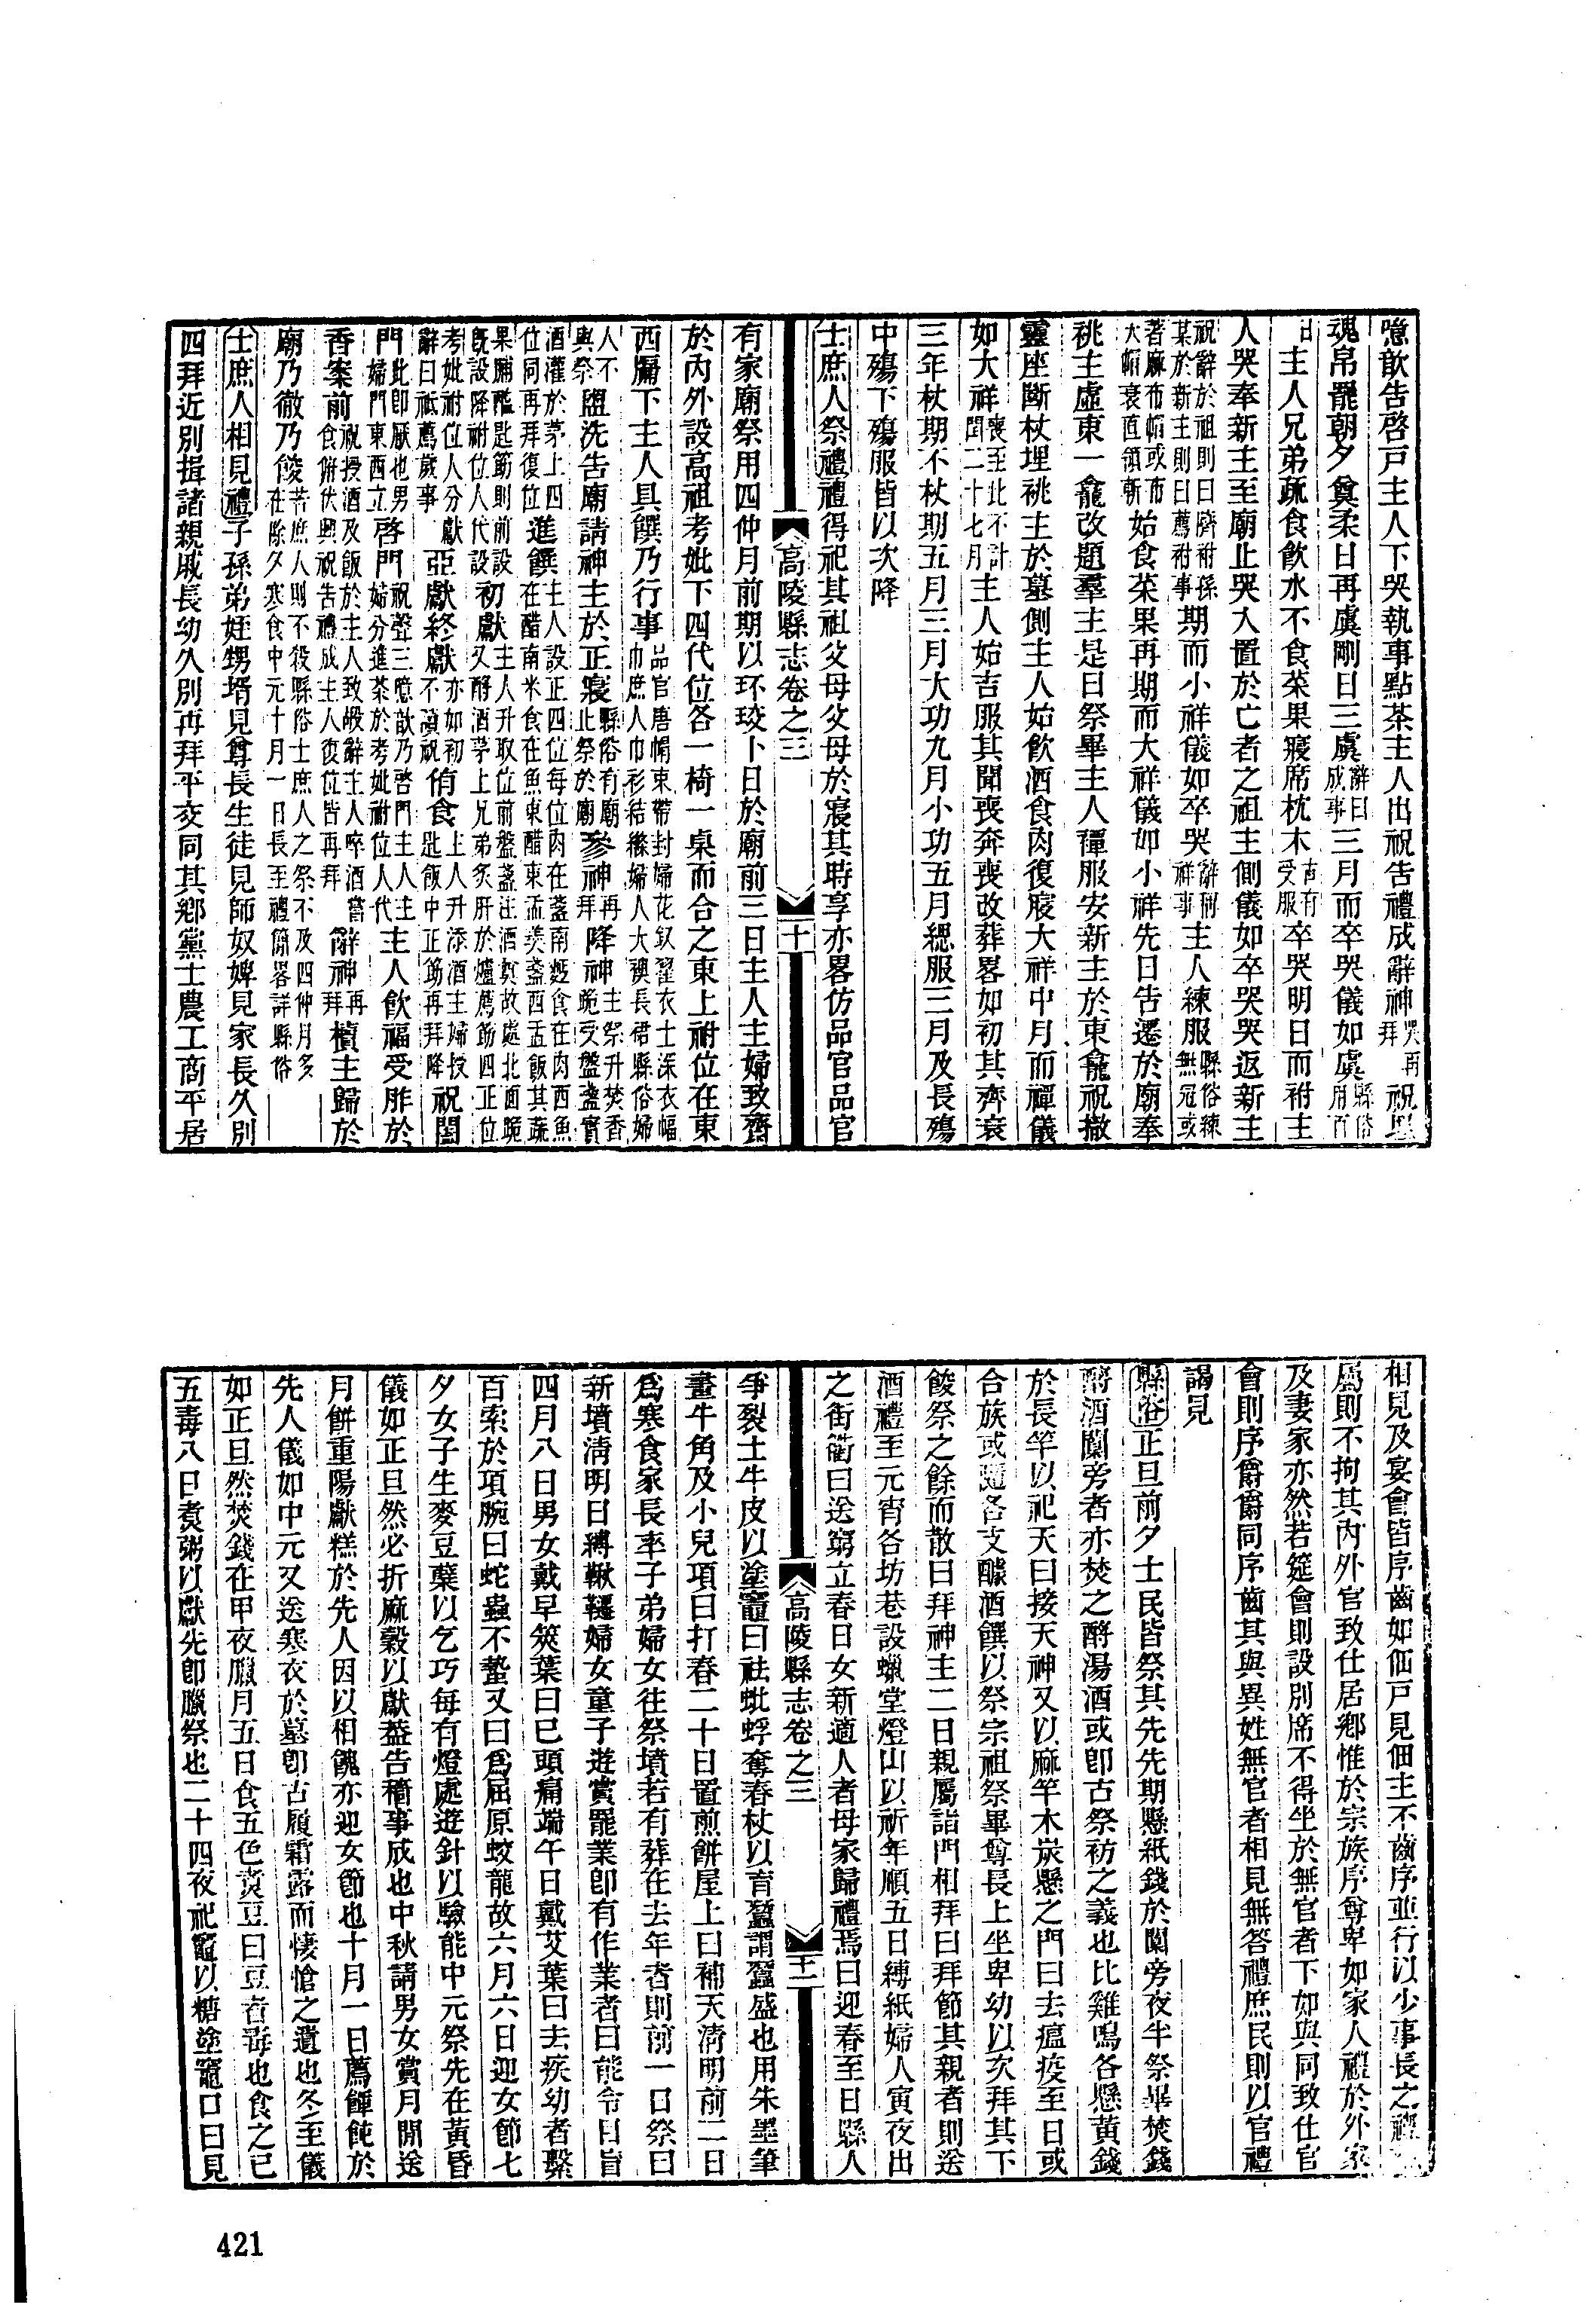 噫歆告啓戸主人下哭執事點茶主人出祝告禮成辭神哭再拜祝埋
魂帛罷朝夕奠柔日再虞剛日三虞辭曰成事三月而卒哭儀如虞縣俗用百
日主人兄弟疏食飲水不食菜果寢席枕木古有受服卒哭明日而祔主
人哭奉新主至廟止哭入置於亡者之祖主側儀如卒哭哭返新主
祝辭於祖則曰隮祔孫某於新主則曰薦祔事期而小祥儀如卒哭辭稱祥事主人練服縣俗練無冠或
著麻布幘或布大幅衰直領斬始食菜果再期而大祥儀如小祥先日告遷於廟奉
祧主虛東一龕改題羣主是日祭畢主人禫服安新主於東龕祝撤
靈座斷杖埋祧主於墓側主人始飲酒食肉復寢大祥中月而禫儀
如大祥喪至此不計閏二十七月主人始吉服其聞喪奔喪改葬畧如初其齊衰
三年杖期不杖期五月三月大功九月小功五月緦服三月及長殤
中殤下殤服皆以次降
士庶人祭禮禮得祀其祖父母父母於寢其時享亦畧仿品官品官
高陵縣志卷之三 十
有家廟祭用四仲月前期以环珓卜日於廟前三日主人主婦致齋
於內外設高祖考妣下四代位各一椅一桌而合之東上祔位在東
西牖下主人具饌乃行事品官唐帽束帶封婦花釵翟衣士深衣幅巾庶人巾衫結絛婦人大襖長裙縣俗婦
人不與祭盥洗告廟請神主於正寢縣俗有廟止祭於廟參神再拜降神主祭升焚香跪受盤盞實
酒灌於茅上四位同再拜復位進饌主人設正四位每位肉在盞南麪食在肉西魚在醋南米食在魚東醋東盂羹盞西盂飯其蔬
果脯醢匙筯則前設旣設降祔位人代設初獻主人升取位前盤盞注酒奠故處北面跪又酹酒茅上兄弟炙肝於爐薦筯四正位
考妣祔位人分獻辭曰祗薦歲事亞獻終獻亦如初不讀祝侑食上人升添酒主婦扱匙飯中正筯再拜降祝闔
門此卽厭也男婦門東西立啓門祝聲三噫歆乃啓門主人主婦分進茶於考妣祔位人代主人飲福受胙於
香案前祝授酒及飯於主人致嘏辭主人啐酒嘗食俯伏興祝告禮成主人復位皆再拜辭神再拜櫝主歸於
廟乃徹乃餕若庶人則不役縣俗士庶人之祭不及四仲月多在除夕寒食中元十月一日長至禮簡畧詳縣俗
士庶人相見禮子孫弟姪甥壻見尊長生徒見師奴婢見家長久別
四拜近別揖諸親戚長幼久別再拜平交同其鄉黨士農工商平居
相見及宴會皆序齒如佃戸見佃主不齒序並行以少事長之禮
屬則不拘其內外官致仕居鄉惟於宗族序尊卑如家人禮於外家
及妻家亦然若筵會則設別席不得坐於無官者下如與同致仕官
會則序爵爵同序齒其與異姓無官者相見無答禮庶民則以官禮
謁見
縣俗正旦前夕士民皆祭其先先期懸紙錢於閫旁夜半祭畢焚錢
酹酒闑旁者亦焚之酹湯酒或卽古祭祊之義也比雞鳴各懸黃錢
於長竿以祀天曰接天神又以麻竿木炭懸之門曰去瘟疫至日或
合族或隨各支醵酒饌以祭宗祖祭畢尊長上坐卑幼以次拜其下
餕祭之餘而散曰拜神主二日親屬詣門相拜曰拜節其親者則送
酒禮至元宵各坊巷設蠟堂燈山以祈年順五日縛紙婦人寅夜出
之街衢曰送窮立春日女新適人者母家歸禮焉曰迎春至日縣人
高陵縣志卷之三 十一
爭裂土牛皮以塗竈曰祛蚍蜉奪春杖以育蠶謂蠶盛也用朱墨筆
畫牛角及小兒項曰打春二十日置煎餅屋上曰補天清明前二日
爲寒食家長率子弟婦女往祭墳若有葬在去年者則前一日祭曰
新墳清明日縛鞦韆婦女童子遊賞罷業卽有作業者曰能令目盲
四月八日男女戴皁筴葉曰已頭痛端午日戴艾葉曰去疾幼者繫
百索於項腕曰蛇蟲不螫又曰爲屈原蛟龍故六月六日迎女節七
夕女子生麥豆蘖以乞巧每有燈處遊針以驗能中元祭先在黃昏
儀如正旦然必折麻穀以獻葢告穡事成也中秋請男女賞月閒送
月餅重陽獻糕於先人因以相餽亦迎女節也十月一日薦餫飩於
先人儀如中元又送寒衣於墓卽古履霜露而悽愴之遺也冬至儀
如正旦然焚錢在甲夜臘月五日食五色煑豆曰豆者毒也食之已
五毒八日煑粥以獻先卽臘祭也二十四夜祀竈以糖塗竈口曰見
421